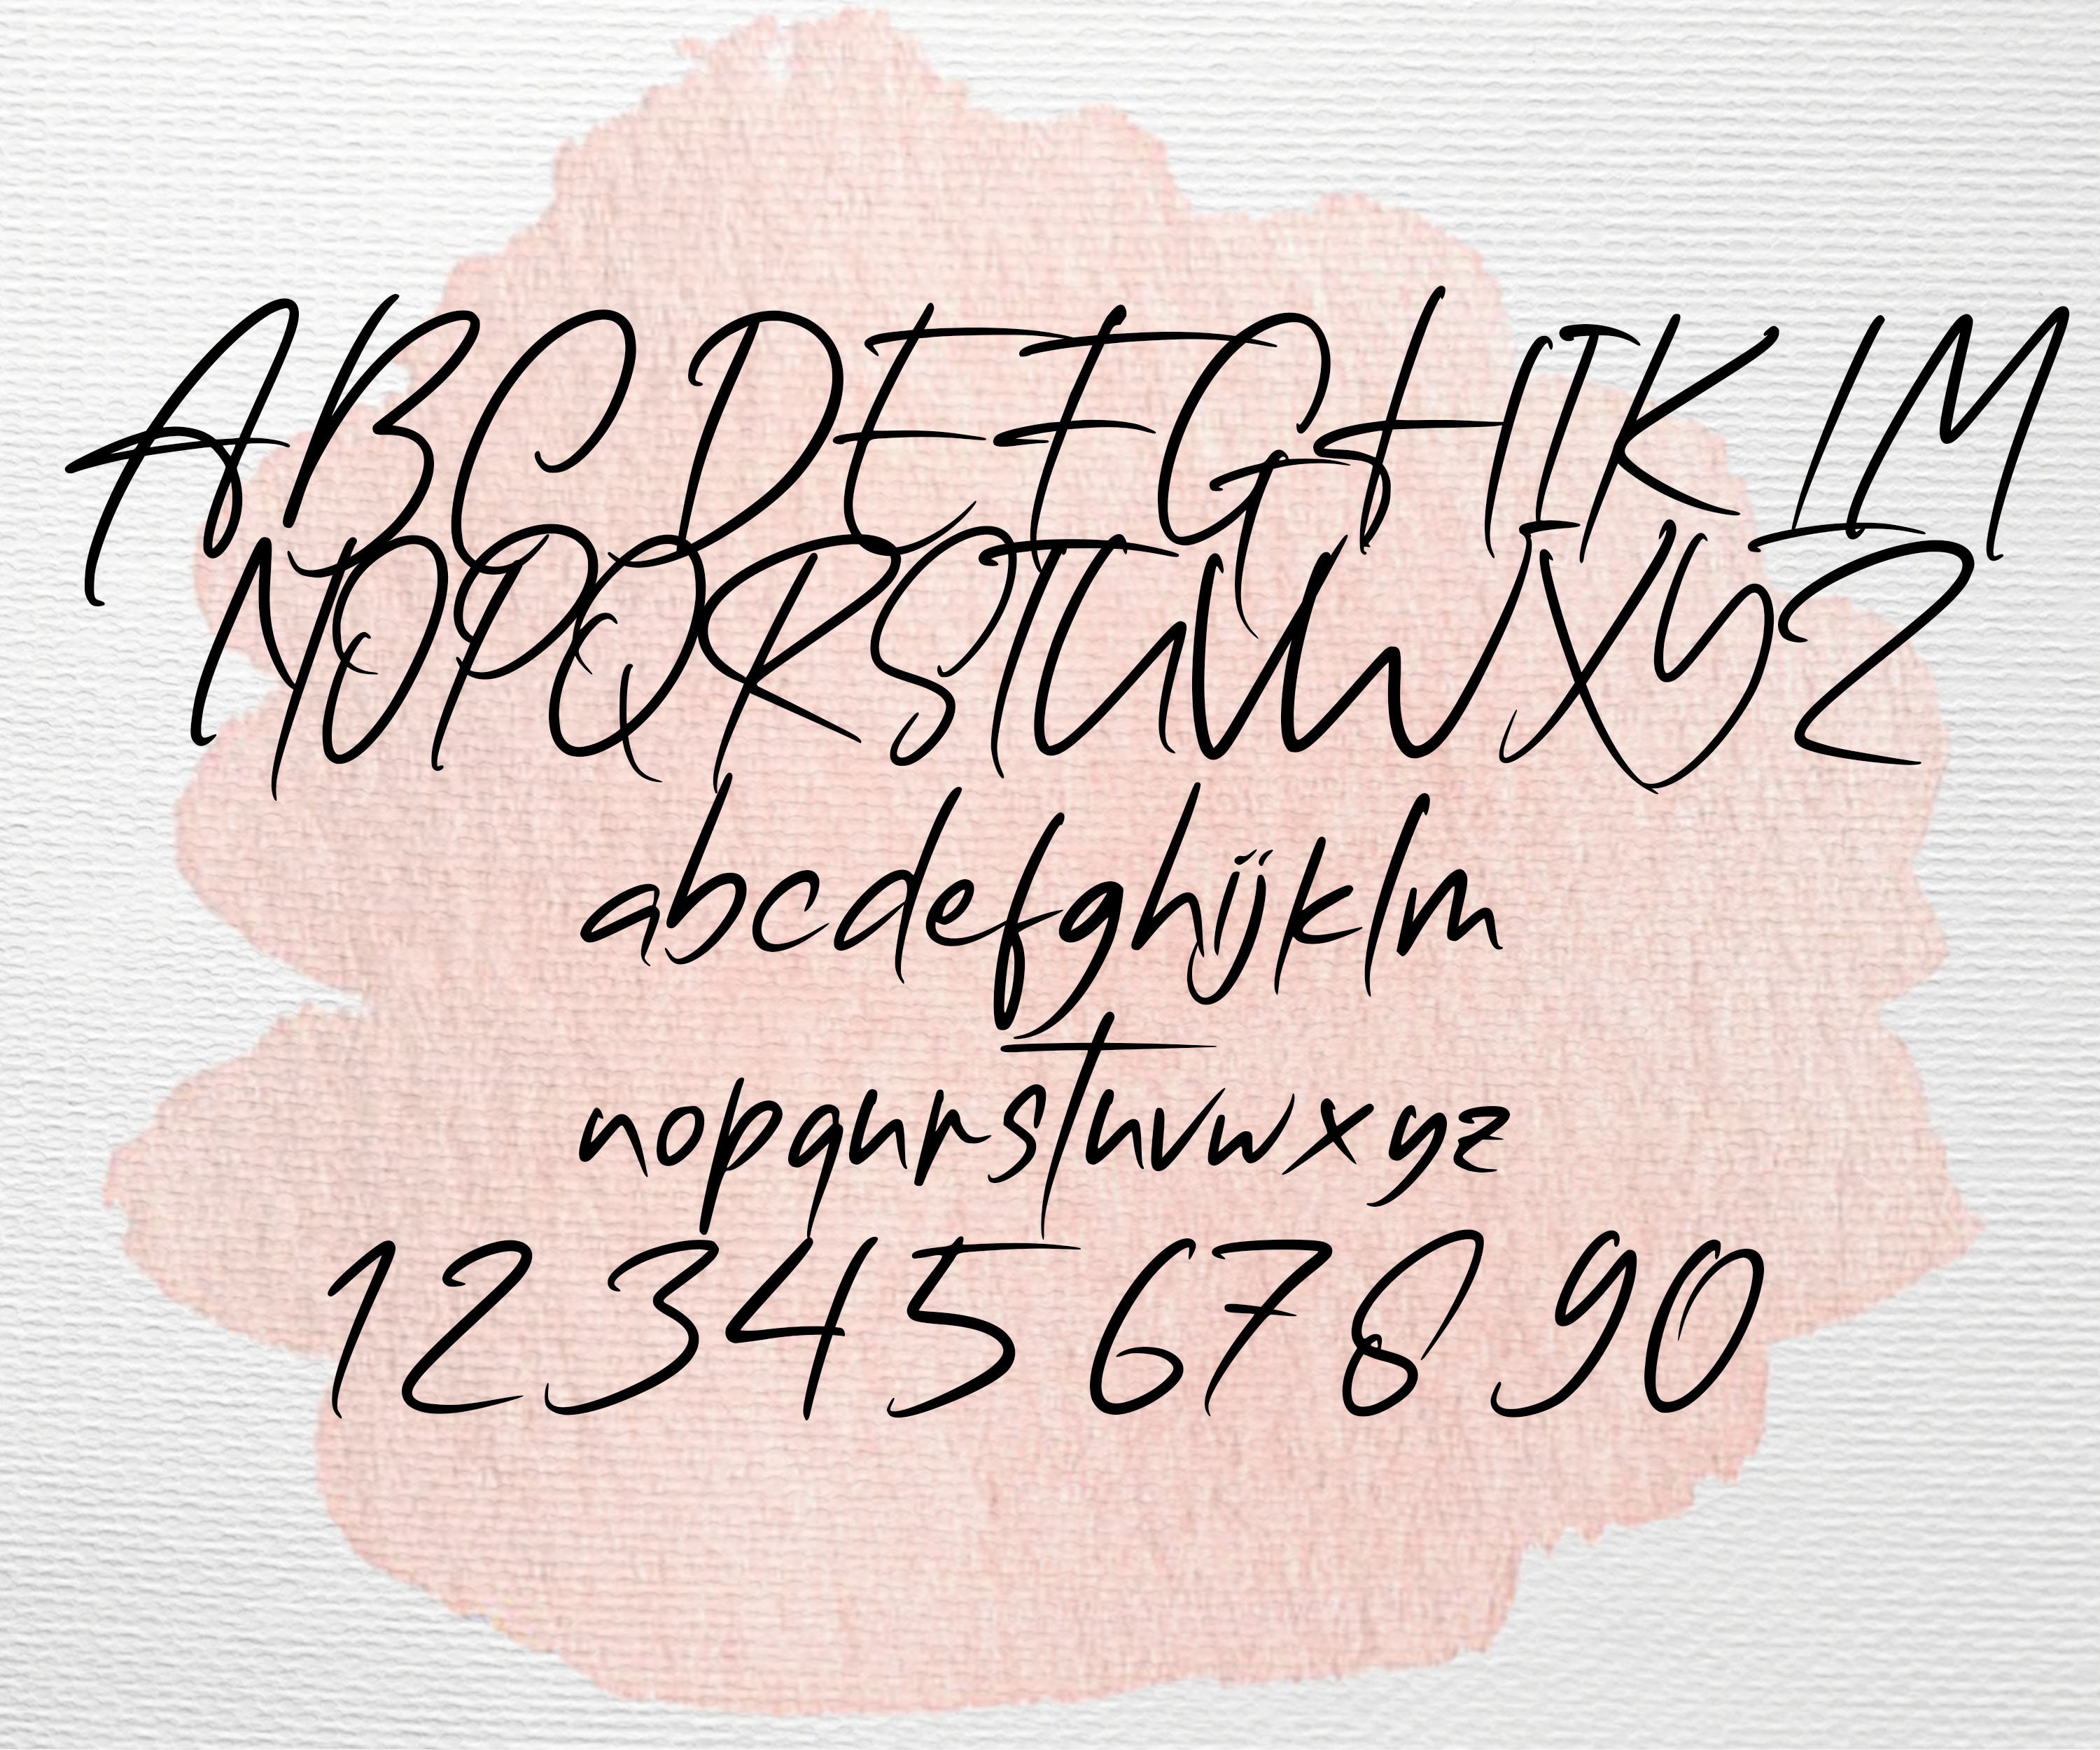 ABCDEFGHIKLM
NOPQRSTUVWXYZ
abcdefghijklm
nopqurstuvwxyz
1234567890